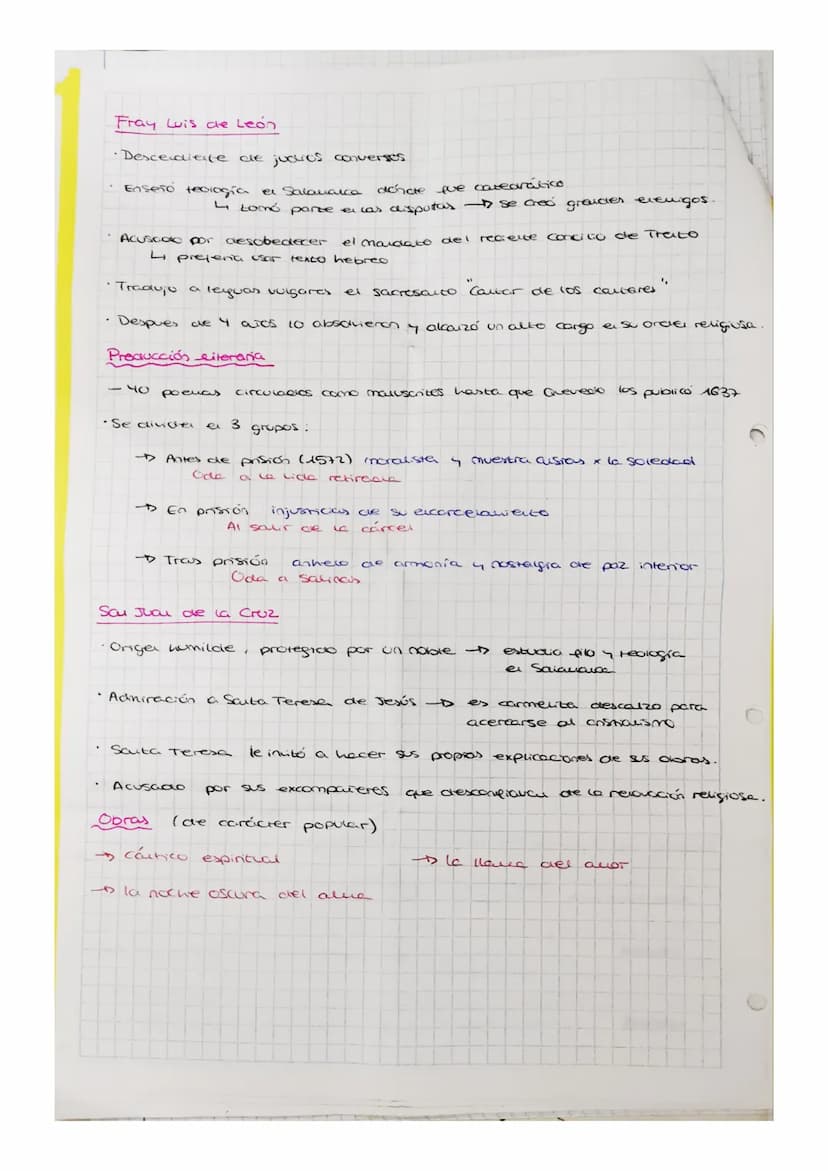 Fray Luis de León
· Descendiente de judíos conversos
· Enseñó teología en Salamanca dónde fue catedrático
↳ tomó parte en las disputas → se creó grandes enemigos.
· Acusado por desobedecer el mandato del reciente Concilio de Trento
↳ prefería usar texto hebreo
· Tradujo a lenguas vulgares el sacrosanto "Cantar de los cantares"
· Después de 4 años lo absolvieron y alcanzó un alto cargo en su orden religiosa.
Producción literaria
– 40 poemas circulados como manuscritos hasta que Quevedo los publicó 1637
· Se dividen en 3 grupos:
→ Antes de prisión (1572) moralista y muestra ansias x la soledad
Oda a la vida retirada
→ En prisión injusticias de su encarcelamiento
Al salir de la cárcel
→ Tras prisión anhelo de armonía y nostalgia de paz interior
Oda a Salinas
San Juan de la Cruz
· Origen humilde, protegido por un noble → estudia filo y teología
en Salamanca
· Admiración a Santa Teresa de Jesús → es carmelita descalzo para
acercarse al cristianismo
· Santa Teresa le invitó a hacer sus propias explicaciones de sus obras.
· Acusado por sus excompañeros que desconfiaban de la religiosa.
Obras (de carácter popular)
→ Cántico espiritual → la llama del amor
→ la noche oscura del alma